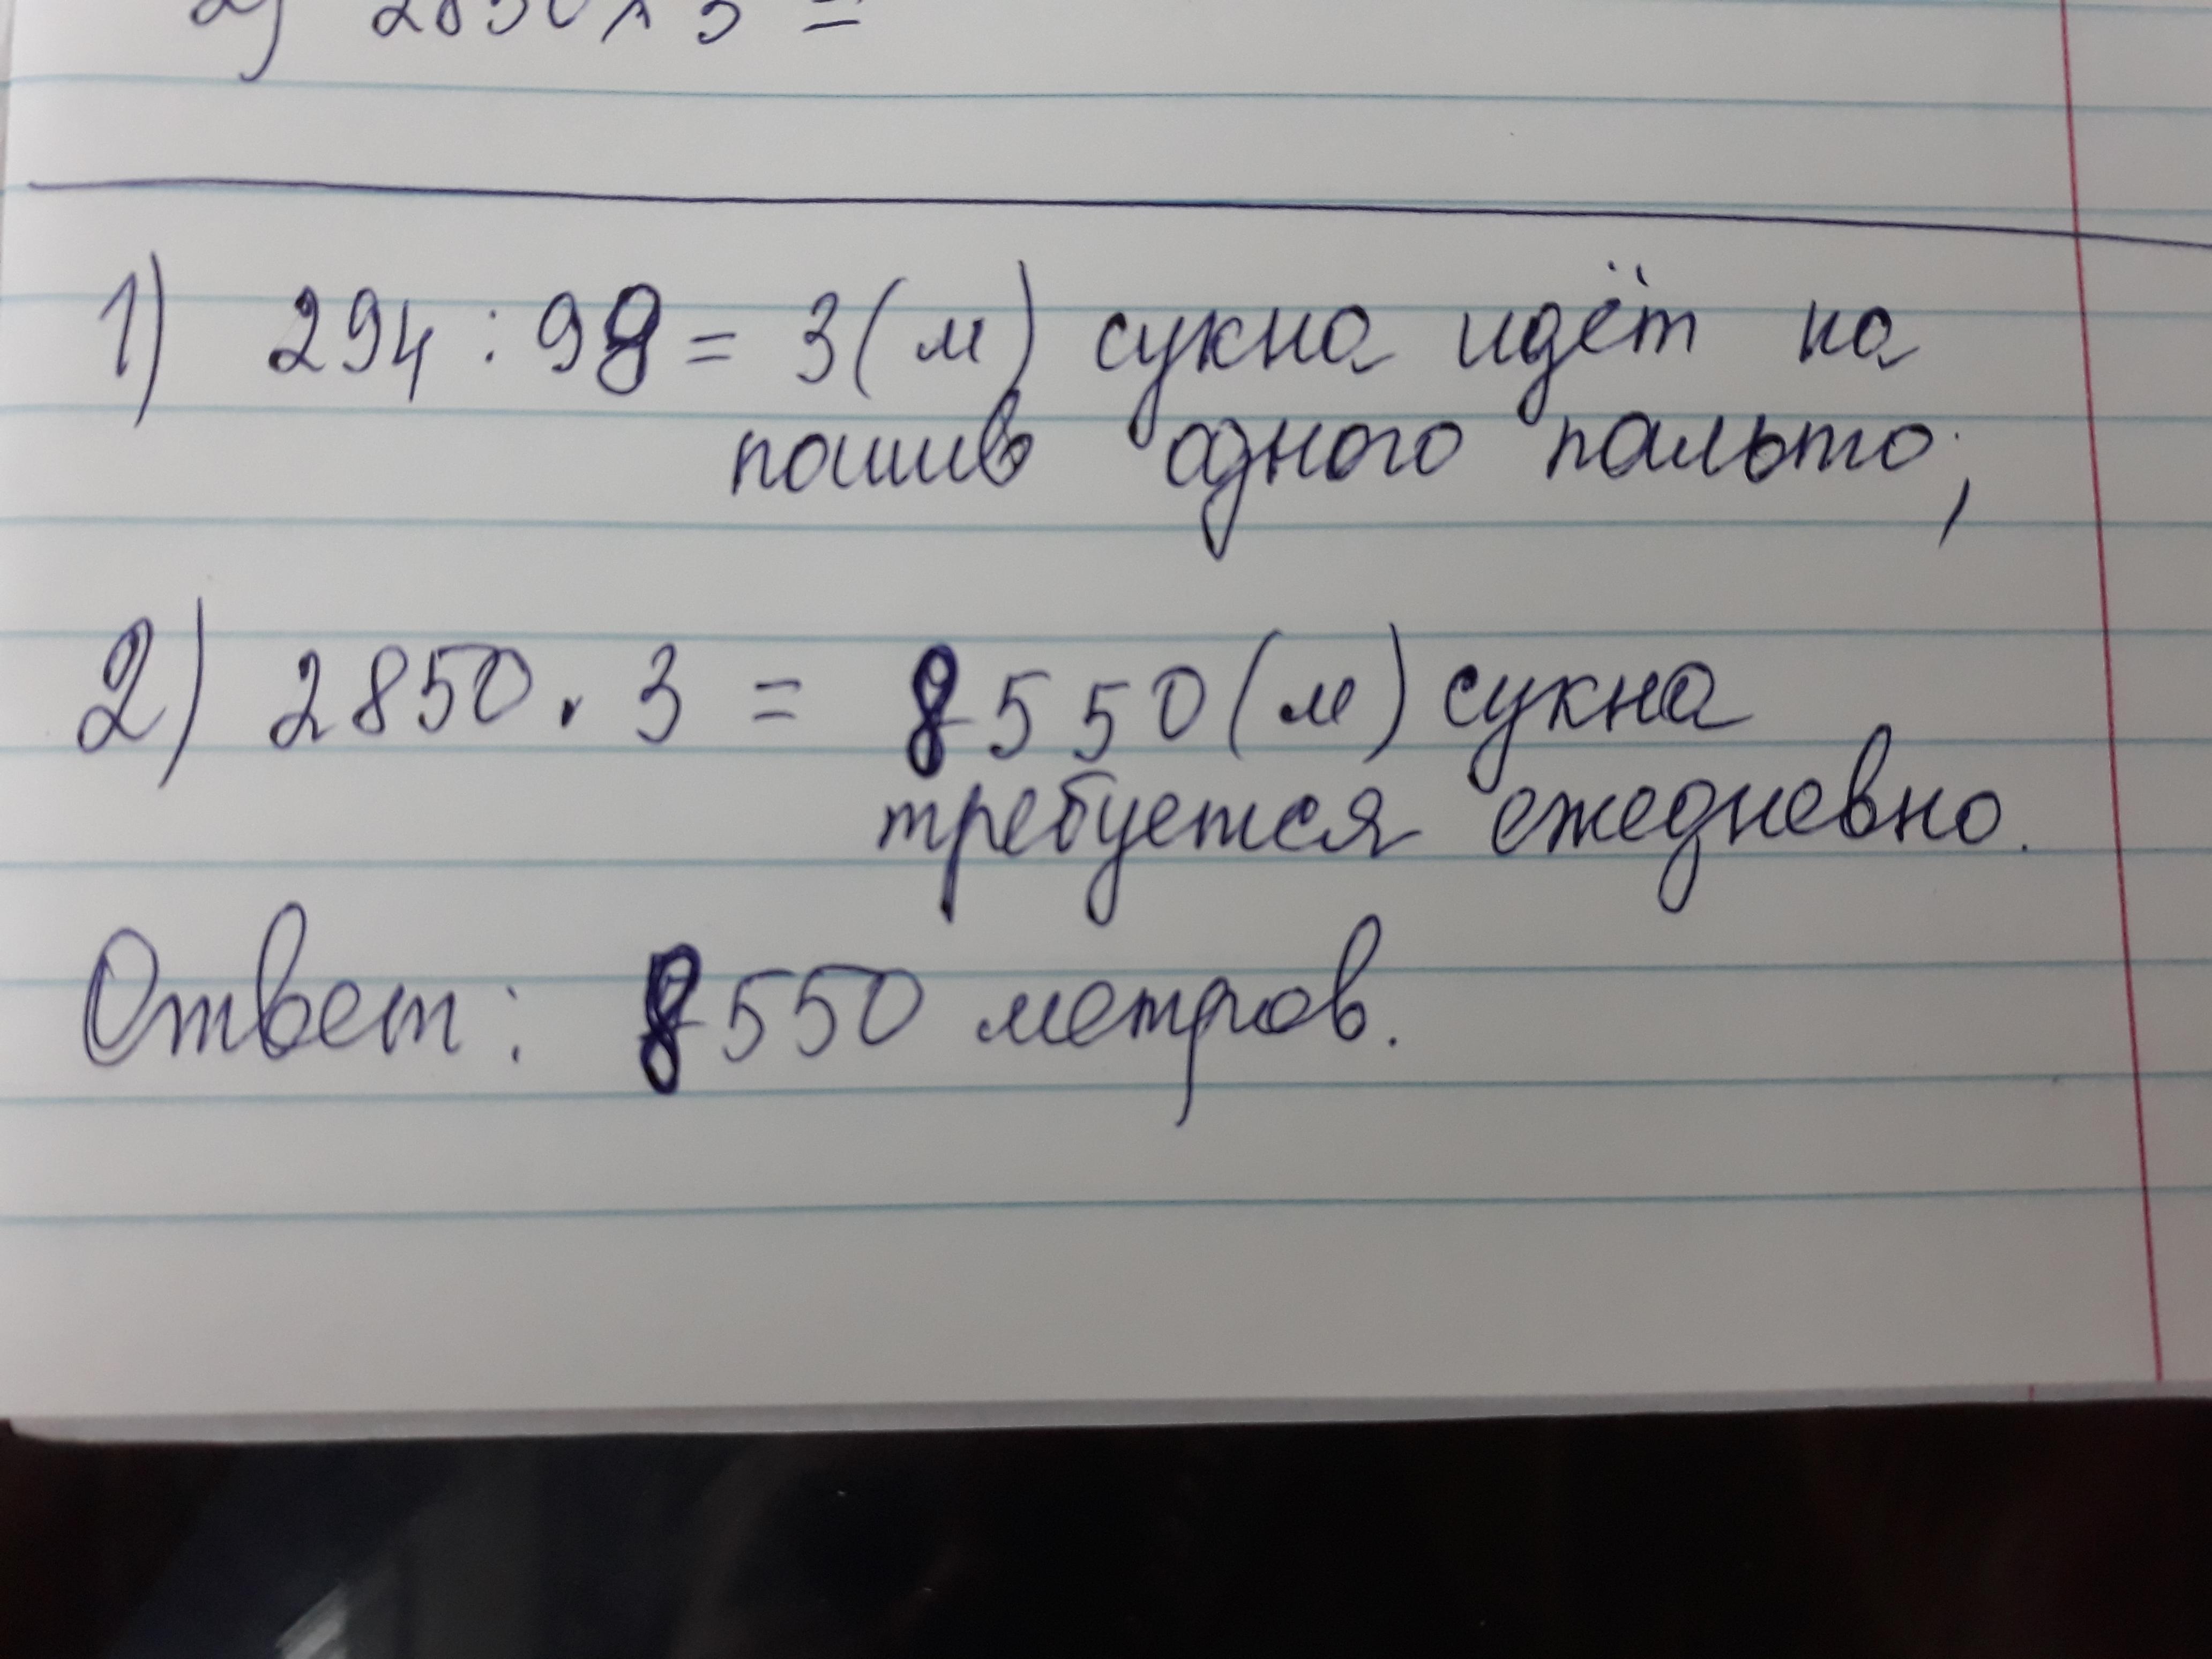 2) 2850 × 3 =
1) 294 : 98 = 3 (м) сукна идёт на
пошив одного пальто;
2) 2850 . 3 = 8550 (м) сукна
требуется ежедневно.
Ответ: 8550 метров.